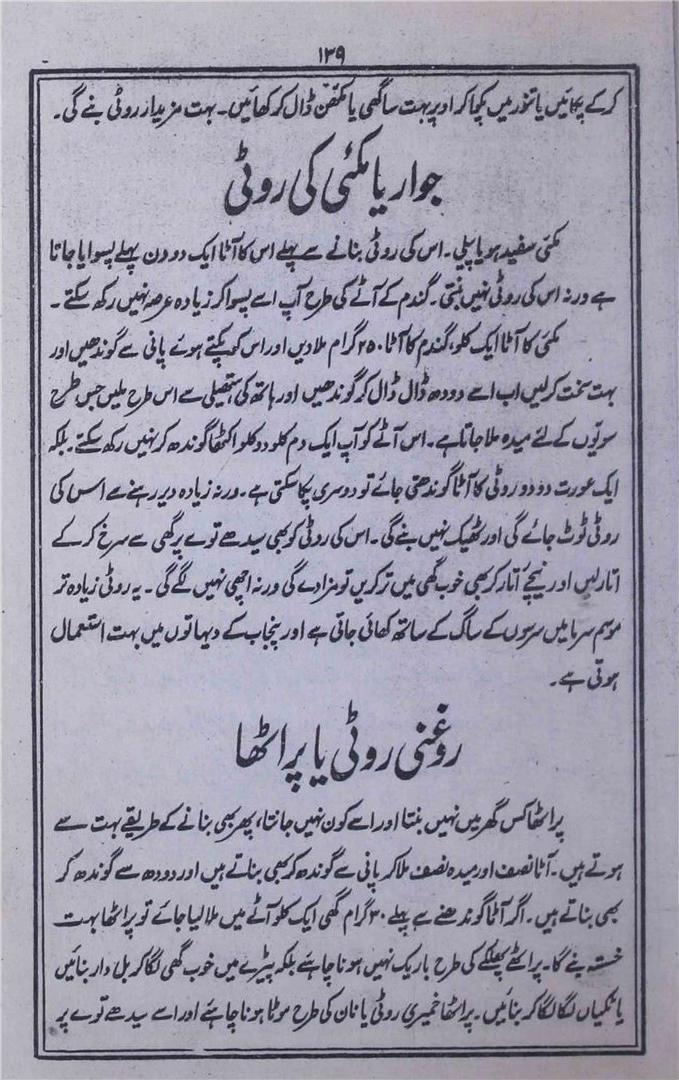 ۱۳۹
کر کے پکائیں یا تنور میں پکا کر اوپر بہت سا گھی یا مکھن ڈال کر کھائیں۔ بہت مزیدار روٹی بنے گی۔
جوار یا مکئی کی روٹی
مکئی سفید ہو یا پیلی۔ اس کی روٹی بنانے سے پہلے اس کا آٹا ایک دو دن پہلے پسوایا جاتا
ہے ورنہ اس کی روٹی نہیں بنتی۔ گندم کے آٹے کی طرح آپ اسے پسوا کر زیادہ عرصہ نہیں رکھ سکتے۔
مکئی کا آٹا ایک کلو، گندم کا آٹا ۲۵۰ گرام ملا دیں اور اس کو پکتے ہوئے پانی سے گوندھیں اور
بہت سخت کر لیں اب اسے دودھ ڈال ڈال کر گوندھیں اور ہاتھ کی ہتھیلی سے اس طرح ملیں جس طرح
سویّوں کے لئے میدہ ملا جاتا ہے۔ اس آٹے کو آپ ایک دم کلو دو کلو اکٹھا گوندھ کر نہیں رکھ سکتے۔ بلکہ
ایک عورت دو دو روٹی کا آٹا گوندھتی جائے تو دوسری پکا سکتی ہے۔ ورنہ زیادہ دیر رہنے سے اس کی
روٹی ٹوٹ جائے گی اور ٹھیک نہیں بنے گی۔ اس کی روٹی کو بھی سیدھے توے پر گھی سے سرخ کر کے
اتار لیں اور نیچے اتار کر بھی خوب گھی میں تر کریں تو مزا دے گی ورنہ اچھی نہیں لگے گی۔ یہ روٹی زیادہ تر
موسم سرما میں سرسوں کے ساگ کے ساتھ کھائی جاتی ہے اور پنجاب کے دیہاتوں میں بہت استعمال
ہوتی ہے۔
روغنی روٹی یا پراٹھا
پراٹھا کس گھر میں نہیں بنتا اور اسے کون نہیں جانتا، پھر بھی بنانے کے طریقے بہت سے
ہوتے ہیں۔ آٹا نصف اور میدہ نصف ملا کر پانی سے گوندھ کر بھی بناتے ہیں اور دودھ سے گوندھ کر
بھی بناتے ہیں۔ اگر آٹا گوندھنے سے پہلے ۳۰ گرام گھی ایک کلو آٹے میں ملا لیا جائے تو پراٹھا بہت
خستہ بنے گا۔ پراٹھے پھلکے کی طرح باریک نہیں ہونا چاہئے بلکہ پیڑے میں خوب گھی لگا کر بل دار بنائیں
یا ٹکیاں لگا لگا کر بنائیں۔ پراٹھا خمیری روٹی یا نان کی طرح موٹا ہونا چاہئے اور اسے سیدھے توے پر